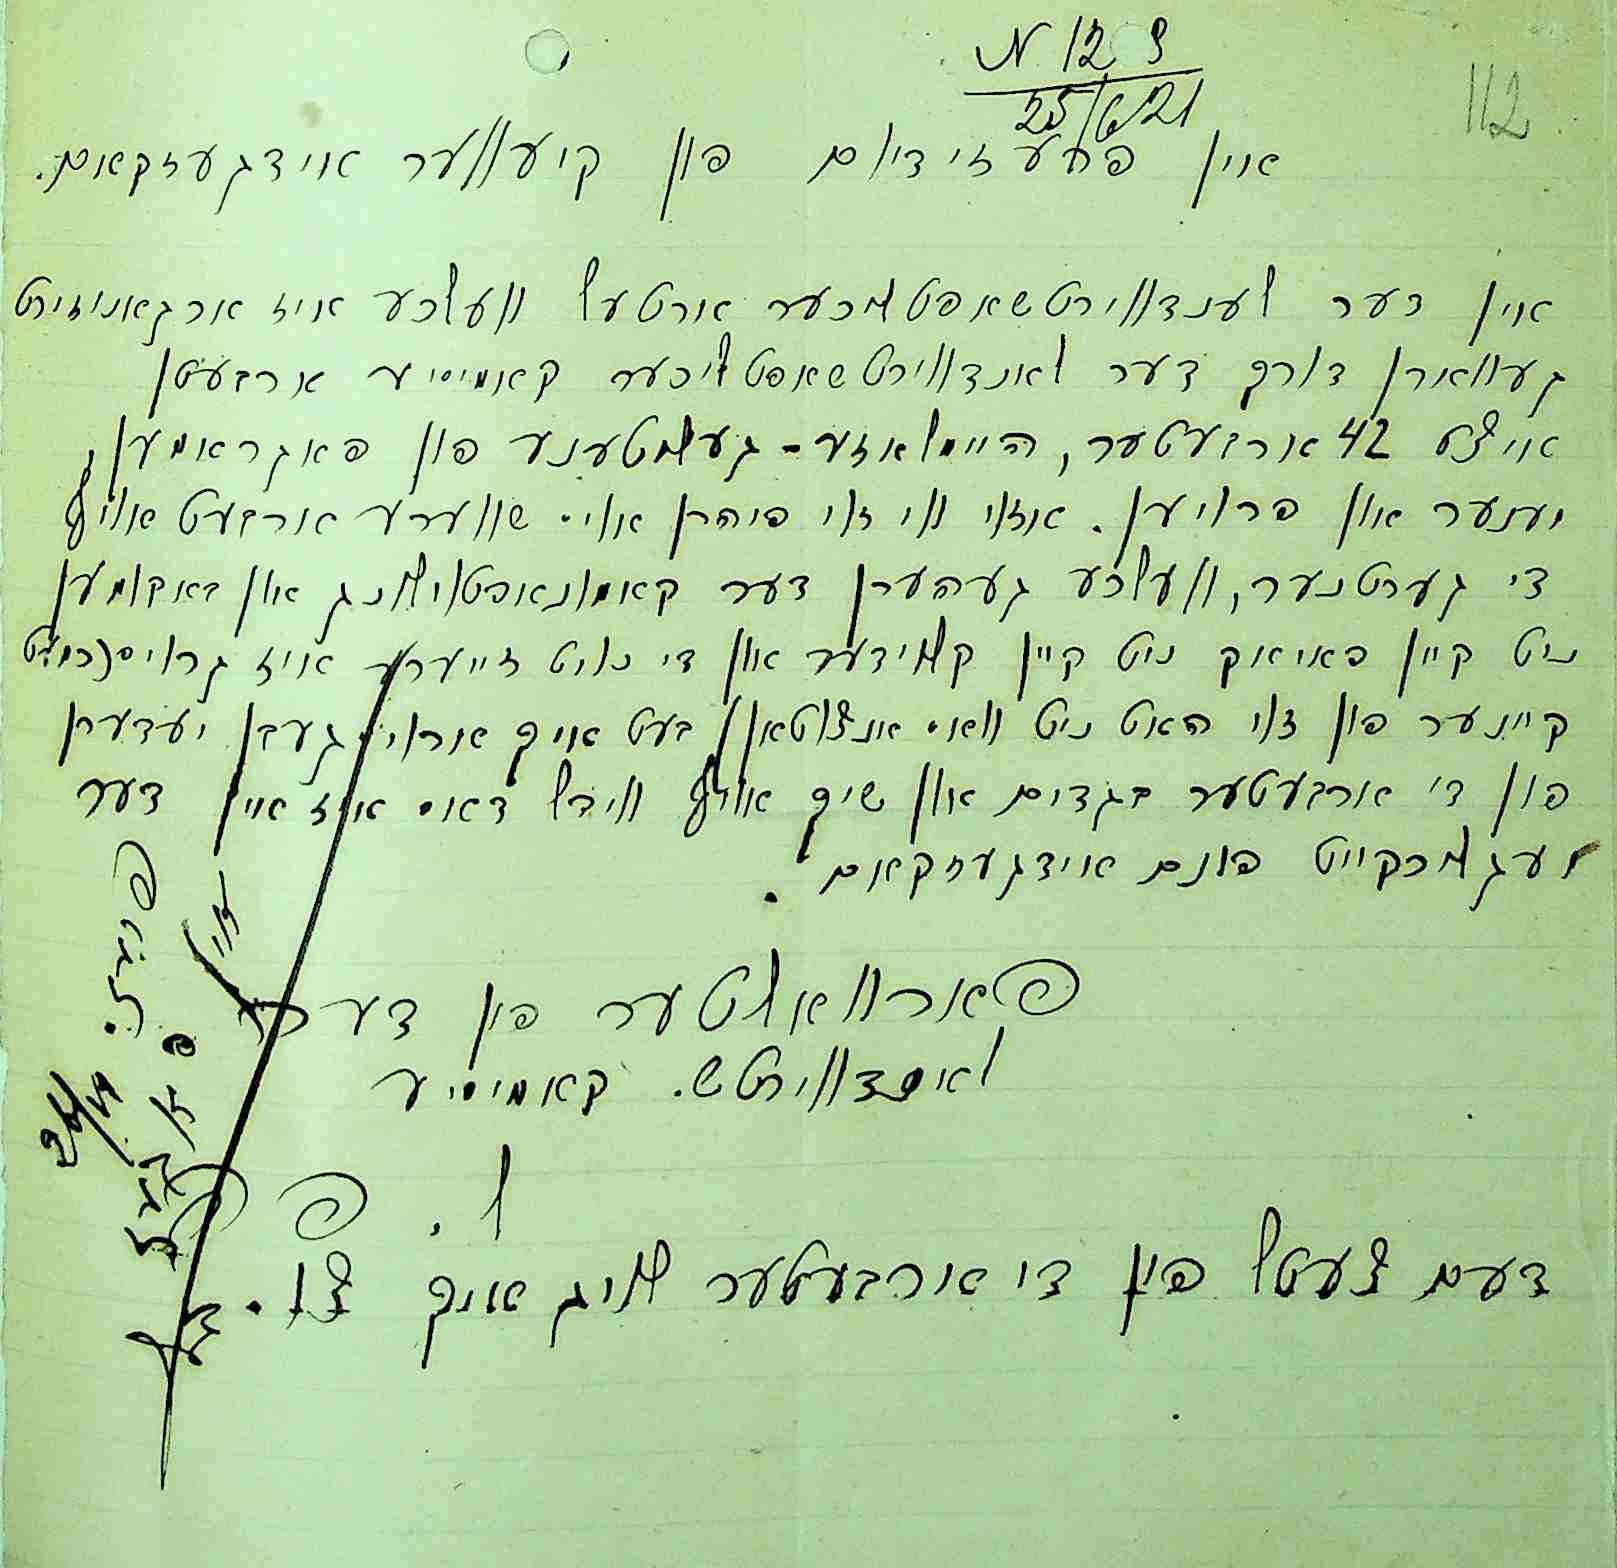 N 129
25/6/21
112
אין פרעזידיום פון קיעווער אידגעזקאם.
אין דער לענדווירטשאפטליכער ארטעל וועלכע איז ארגאניזירט
געווארן דורך דער לאנדווירטשאפטליכער קאמיסיע ארבעטן
איצט 42 ארבעטער, היימלאזע - געליטענע פון פאגראמען,
ענער און פרויען. אזוי ווי זיי פיהרן אויס שווערע ארבעט אויף
די גערטנער, וועלכע געהערן דער קאמונאפטיילונג און באקומען
ניט קיין פאיאק ניט קיין קליידער און די נויט זייערע איז גרויס
קיינער פון זיי האט ניט וואס אנצוטאן בעט איך ארויסגעבן יעדערן
פון די ארבעטער בגדים און שיך אויף וויפל דאס איז אין דער
מעגליכקייט פונם אידגעזקאם.
פארוואלטער פון דער
לאנדווירטש. קאמיסיע
ל. פ
דעם צעטל פון די ארבעטער לייג איך צו.